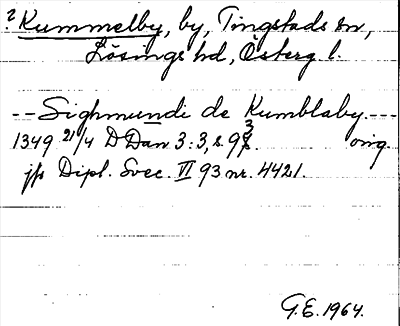 ? Kummelby, by, Tingstads sn,
Lösings hd, Österg l.
-- Sighmundi de Kumblaby. ---
1349 21/4 D Dan 3:3, s. 93. orig.
jfr Dipl. Svec. VI 93 nr. 4421.
G.E. 1964.